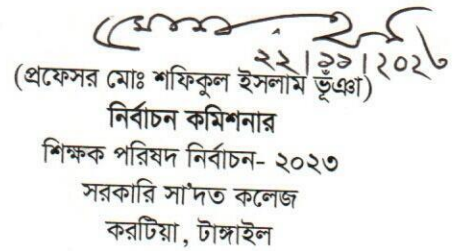 ২২|১১|২০২৩
(প্রফেসর মোঃ শফিকুল ইসলাম ভূঁঞা)
নির্বাচন কমিশনার
শিক্ষক পরিষদ নির্বাচন- ২০২৩
সরকারি সা'দত কলেজ
করটিয়া, টাঙ্গাইল